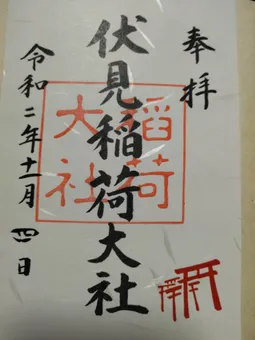 奉拝
伏見稲荷大社
稲荷大社
令和二年十一月四日